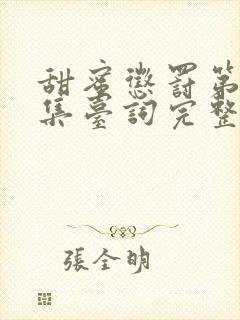 甜蜜懲罰第
集臺詞完整
張全明